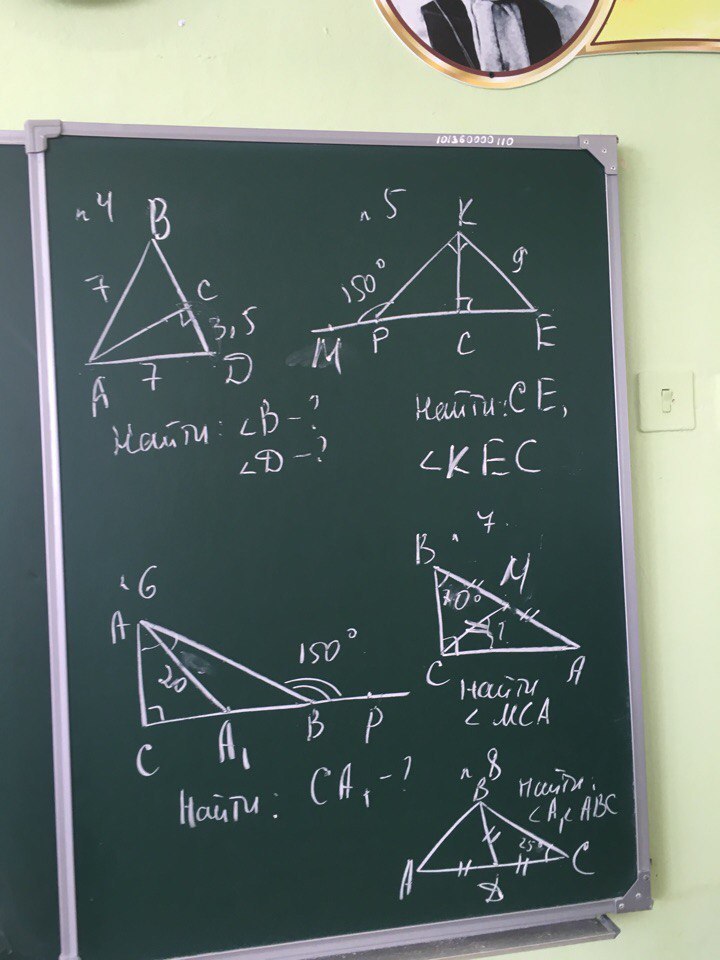 1013600000110
№4
B
7
C
3,5
A
7
D
Найти: ∠B-?
∠D-?
№5
K
150°
9
M
P
C
E
Найти: CE,
∠KEC
№6
A
20
150°
C
A₁
B
P
Найти: CA₁-?
№7.
B
M
70°
?
C
A
Найти
∠MCA
№8
B
Найти:
∠A, ∠ABC
25°
A
D
C